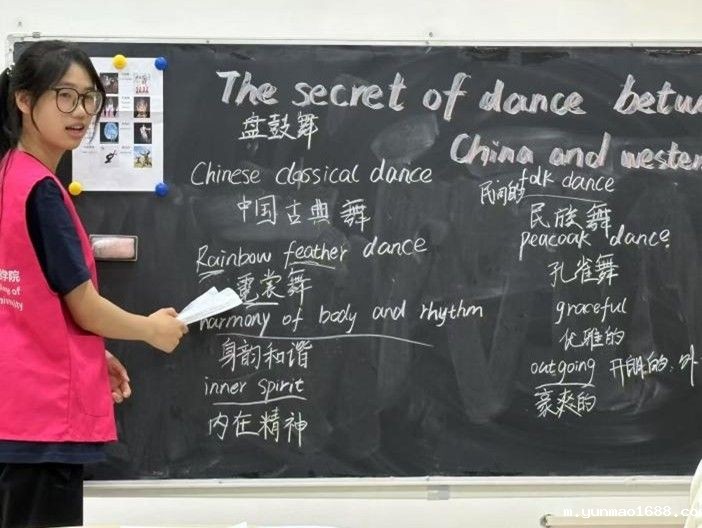 The secret of dance betw
China and western
盘鼓舞
Chinese classical dance
中国古典舞
Rainbow feather dance
霓裳舞
harmony of body and rhythm
身韵和谐
inner spirit
内在精神
民间的 folk dance
民族舞
peacoak dance
孔雀舞
graceful
优雅的
outgoing 开朗的.外
豪爽的
学院
m.yunmao1688.com